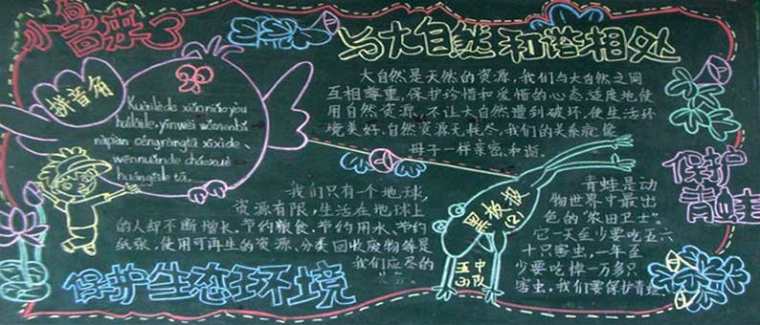 小鸟来了
与大自然和谐相处
拼音角
Kuàilède xiǎoniǎo yòu
huílaile, yīnwèi wǒmen bǎ
nàpiàn céngràng tā xǐxìde,
wēnnuǎnde cháoxué
huángěile tā.
大自然是天然的资源,我们与大自然之间
互相尊重,保护珍惜和爱惜的心态适度地使
用自然资源,不让大自然遭到破坏,使生活环
境美好,自然资源无耗尽,我们的关系就像
母子一样亲密、和谐。
我们只有一个地球,
资源有限,生活在地球上
的人却不断增长。节约粮食、节约用水、节约
纸张、使用可再生的资源、分类回收废物等是
我们应尽的
保护生态环境
黑板报
(2)
五中
(3)队
保护
青蛙
青蛙是动
物世界中最出
色的“农田卫士”。
它一天至少要吃五六
十只害虫,一年至
少要吃掉一万多只
害虫,我们要保护青蛙。